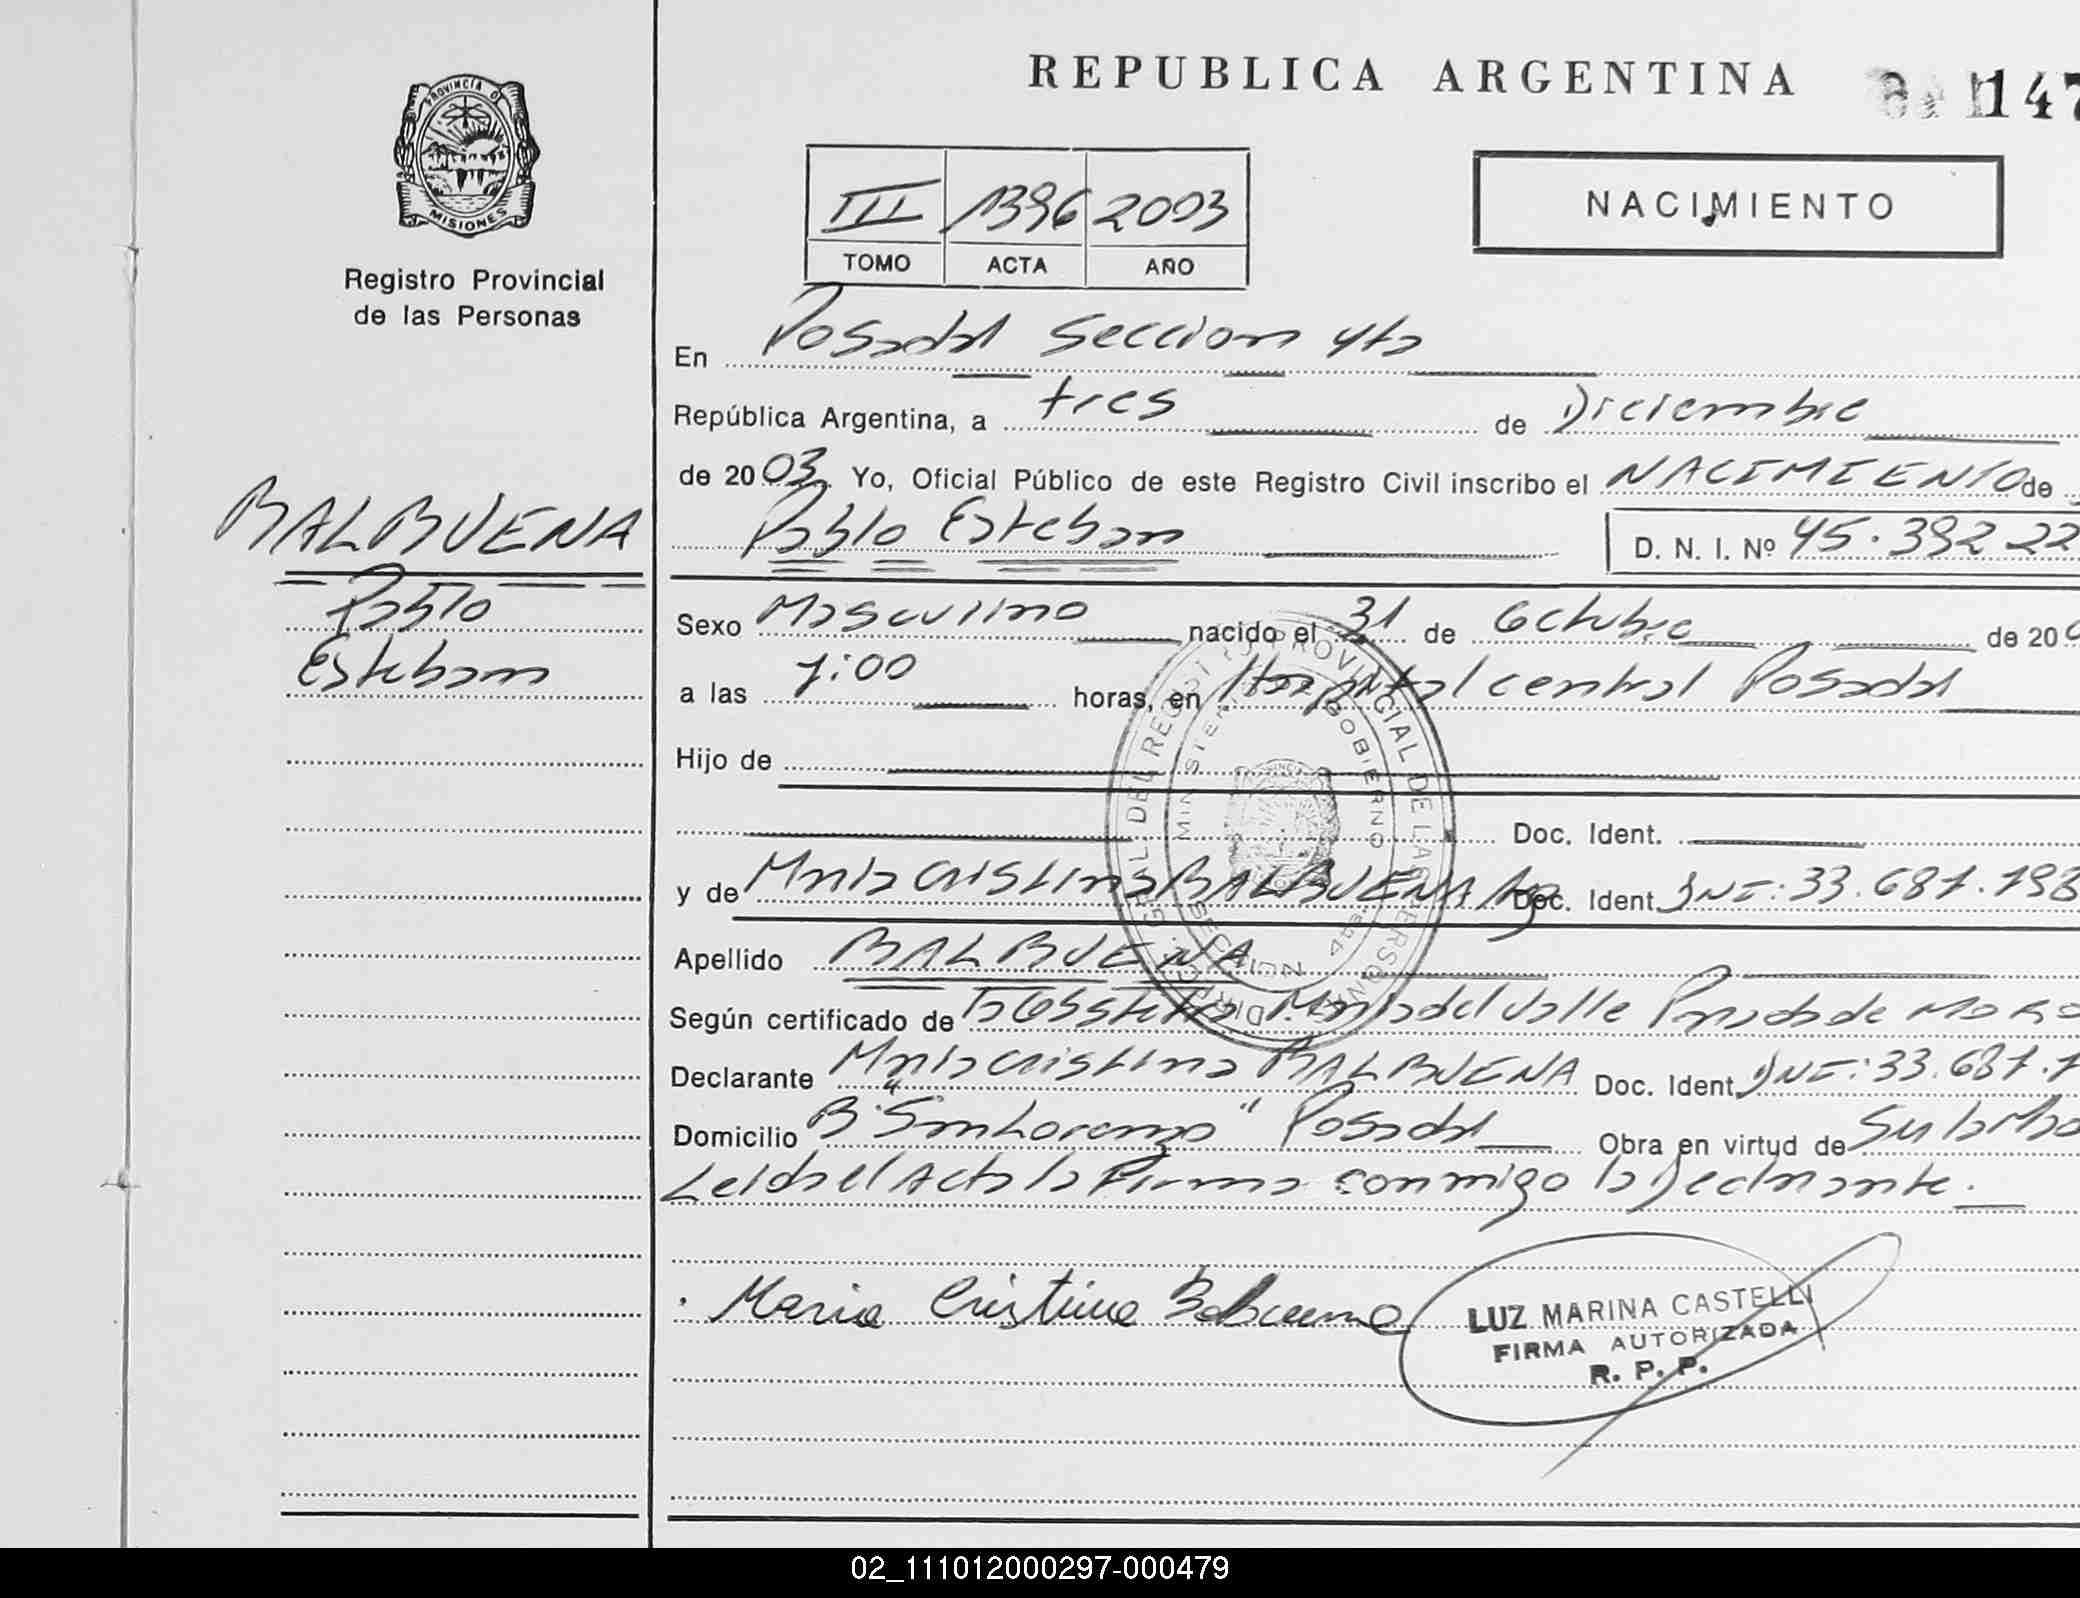 REPUBLICA ARGENTINA
147
PROVINCIA DE MISIONES
Registro Provincial
de las Personas
III 1396 2003
TOMO ACTA AÑO
NACIMIENTO
En Posadas Seccion 4ta
República Argentina, a tres de Diciembre
de 2003 Yo, Oficial Público de este Registro Civil inscribo el NACIMIENTO de
Pablo Esteban D. N. I. Nº 45.392 22
BALBUENA
Pablo
Esteban
Sexo Masculino nacido el 31 de Octubre de 200
a las 7:00 horas, en Hospital central Posadas
Hijo de
Doc. Ident.
y de Maria Cristina BALBUENA Arg Doc. Ident. DNI: 33.687.798
Apellido BALBUENA
Según certificado de la Obstetra Maria del Valle Parada de
Declarante Maria Cristina BALBUENA Doc. Ident. DNI: 33.687.7
Domicilio B "San Lorenzo" Posadas Obra en virtud de Su
Leida el Acta la Firma conmigo la Declarante.
Maria Cristina Balbuena
LUZ MARINA CASTELLI
FIRMA AUTORIZADA
R. P. P.
02_111012000297-000479